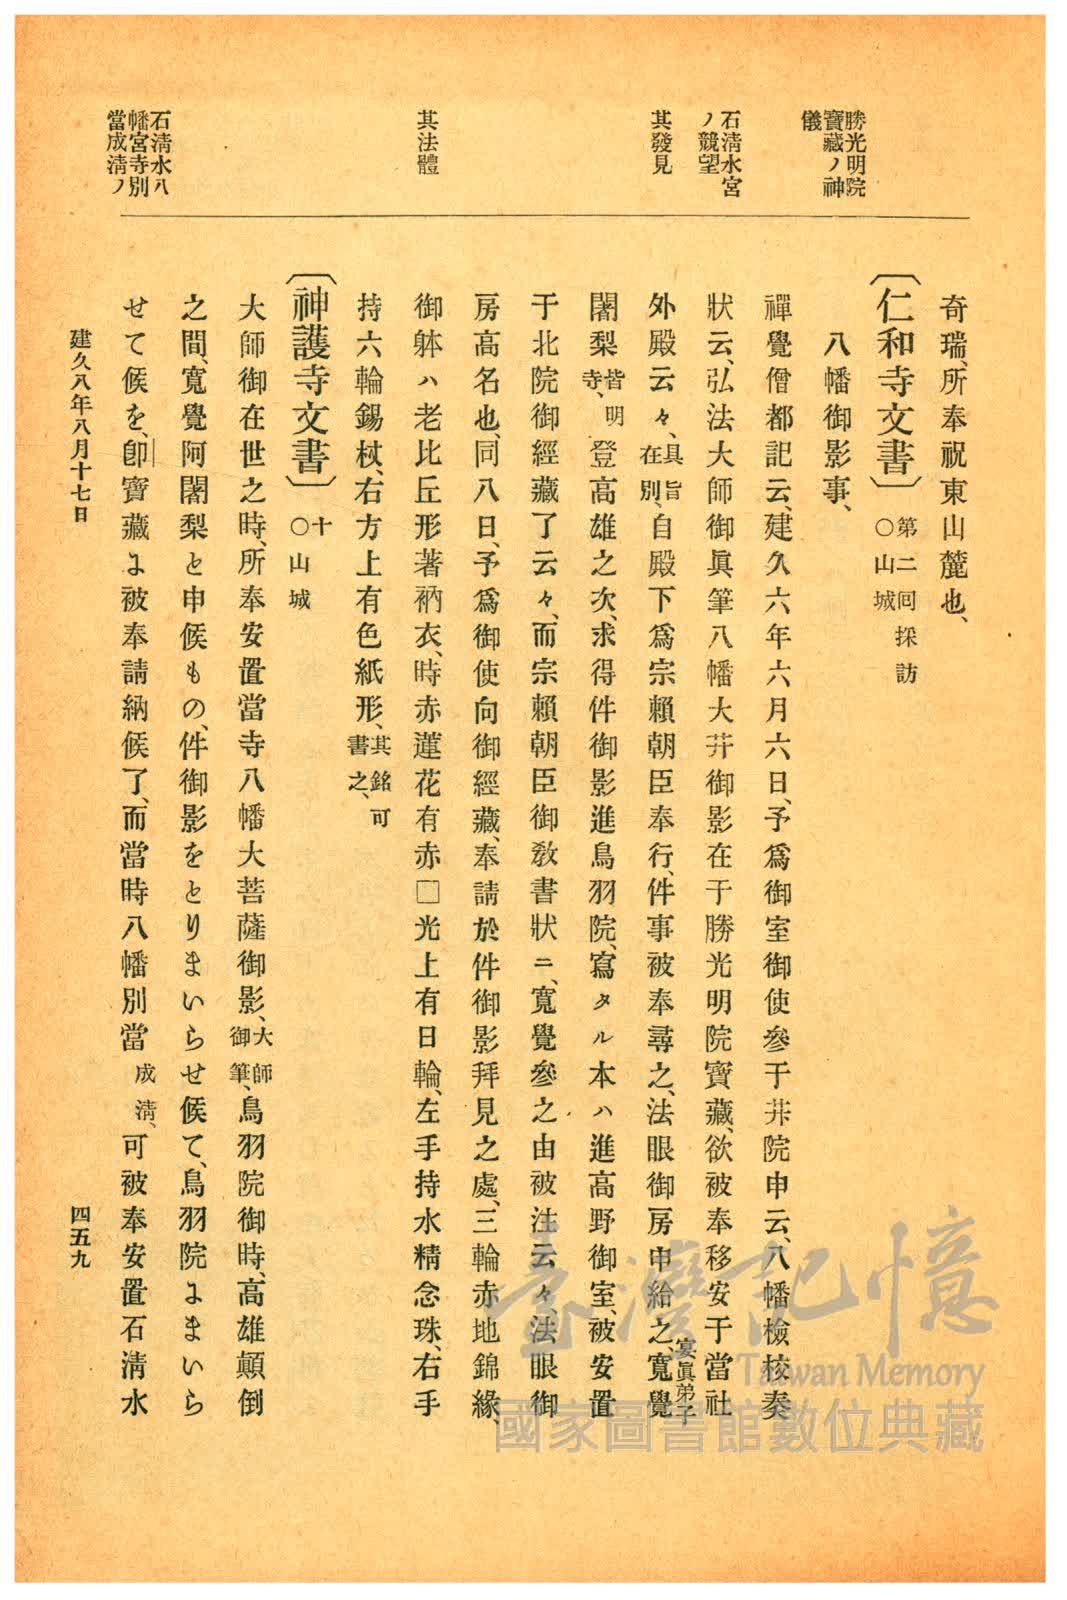 勝光明院
寶藏ノ神
儀
石清水宮
ノ競望
其發見
其法體
石清水八
幡宮寺別
當成清ノ
奇瑞、所奉祝東山麓也、
〔仁和寺文書〕第二回採訪
○山城
八幡御影事、
禪覺僧都記云、建久六年六月六日、予爲御室御使參于井院申云、八幡檢校奏
狀云、弘法大師御眞筆八幡大井御影在于勝光明院寶藏、欲被奉移安于當社
外殿云々、具旨
在別、自殿下爲宗賴朝臣奉行、件事被奉尋之、法眼御房申給之、寬覺
宴眞弟子
闍梨皆明
寺、登高雄之次、求得件御影進鳥羽院、寫タル本ハ進高野御室、被安置
于北院御經藏了云々、而宗賴朝臣御敎書狀ニ、寬覺參之由被注云々、法眼御
房高名也、同八日、予爲御使向御經藏、奉請於件御影拜見之處、三輪赤地錦緣、
御躰ハ老比丘形著衲衣、時赤蓮花有赤□光上有日輪、左手持水精念珠、右手
持六輪錫杖、右方上有色紙形、其銘可
書之、
〔神護寺文書〕十
○山城
大師御在世之時、所奉安置當寺八幡大菩薩御影、大師
御筆、鳥羽院御時、高雄顚倒
之間、寬覺阿闍梨と申候もの、件御影をとりまいらせ候て、鳥羽院にまいら
せて候を、卽寶藏に被奉請納候了、而當時八幡別當成淸、可被奉安置石淸水
建久八年八月十七日
四五九
臺灣記憶
Taiwan Memory
國家圖書館數位典藏